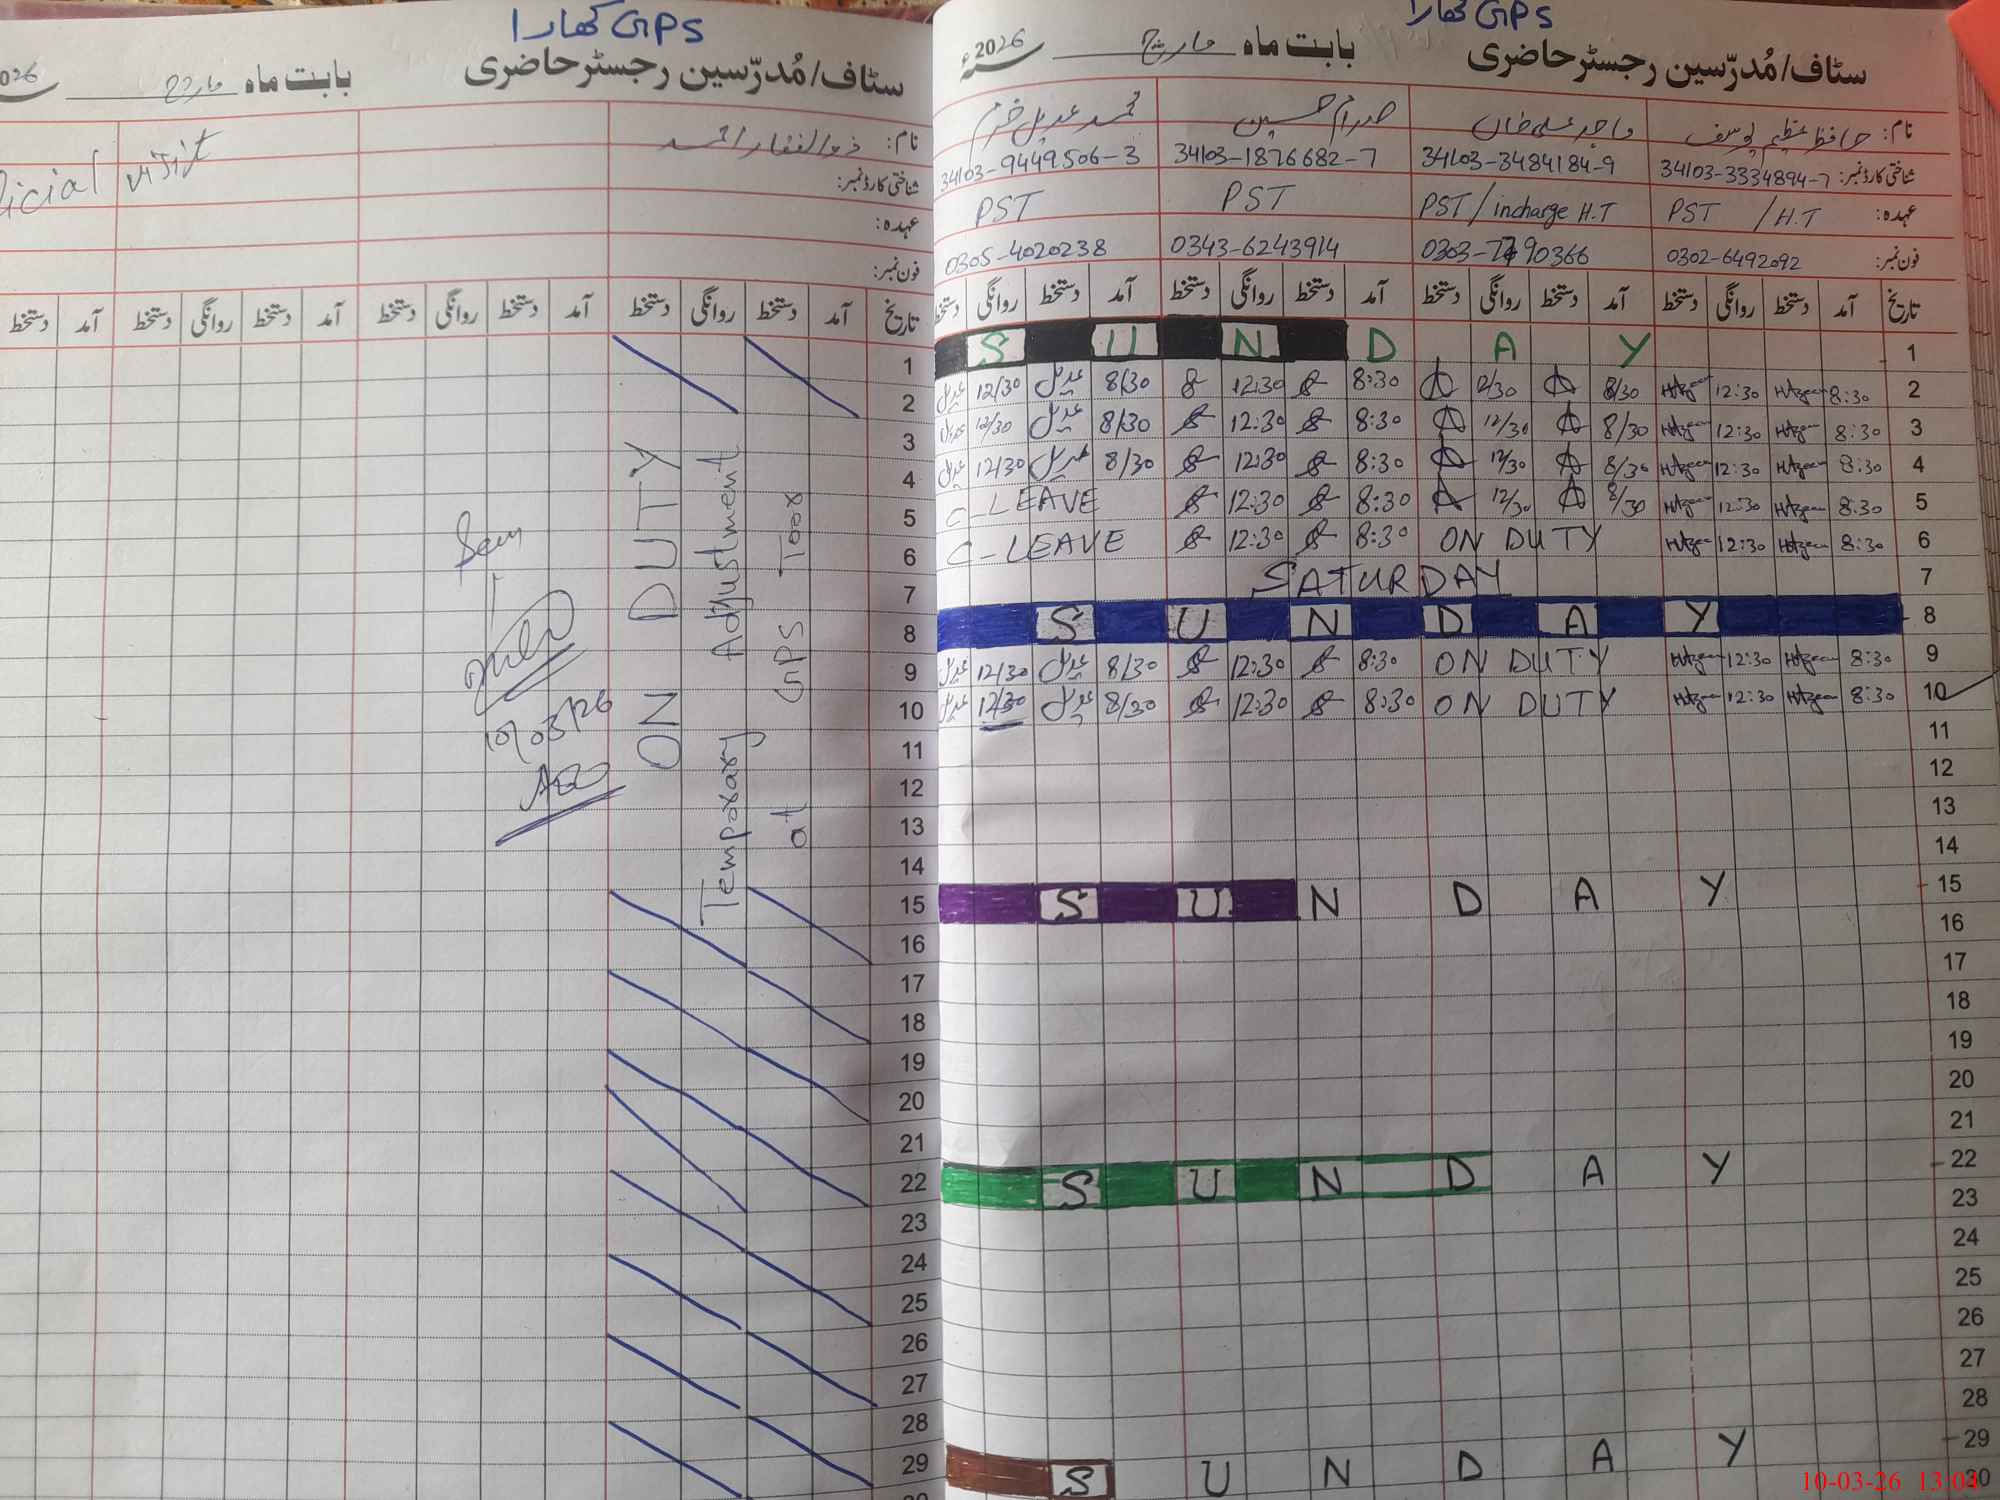 GPS کھارا
سٹاف/مُدرّسین رجسٹر حاضری بابت ماہ مارچ 2026ء
نام: حافظ عظیم یوسف واجد علی خاں صدام حسین محمد عدیل خرم
شناختی کارڈ نمبر: 34103-3334894-7 34103-3484184-9 34103-1876682-7 34103-9449506-3
عہدہ: PST / H.T PST/incharge H.T PST PST
فون نمبر: 0302-6492092 0343-6243914 0305-4020238
تاریخ آمد دستخط روانگی دستخط آمد دستخط روانگی دستخط آمد دستخط روانگی دستخط آمد دستخط روانگی دستخط
1 S U N D A Y
2 8:30 12:30 8/30 12/30 8:30 12:30 8/30 عدیل 12/30 عدیل
3 8:30 12:30 8/30 12/30 8:30 12:30 8/30 عدیل 12/30 عدیل
4 8:30 12:30 8/30 12/30 8:30 12:30 8/30 عدیل 12/30 عدیل
5 8:30 12:30 8/30 12/30 8:30 12:30 C-LEAVE
6 8:30 12:30 ON DUTY 8:30 12:30 C-LEAVE
7 SATURDAY
8 S U N D A Y
9 8:30 12:30 ON DUTY 8:30 12:30 8/30 عدیل 12/30 عدیل
10 8:30 12:30 ON DUTY 8:30 12:30 8/30 عدیل 12/30 عدیل
11
12
13
14
15 S U N D A Y
16
17
18
19
20
21
22 S U N D A Y
23
24
25
26
27
28
29 S U N D A Y
30
10-03-26 13:04
GPS کھارا
سٹاف/مُدرّسین رجسٹر حاضری بابت ماہ مارچ 2026
نام: ذوالفقار احمد visit
شناختی کارڈ نمبر:
عہدہ:
فون نمبر:
تاریخ آمد دستخط روانگی دستخط آمد دستخط روانگی دستخط آمد دستخط روانگی دستخط آمد دستخط
1
2
3
4
5
6
7
8
9
10
11
12
13
14
15
16
17
18
19
20
21
22
23
24
25
26
27
28
29
ON DUTY
Temporary Adjustment
at GPS Toor
Seen
10/03/26